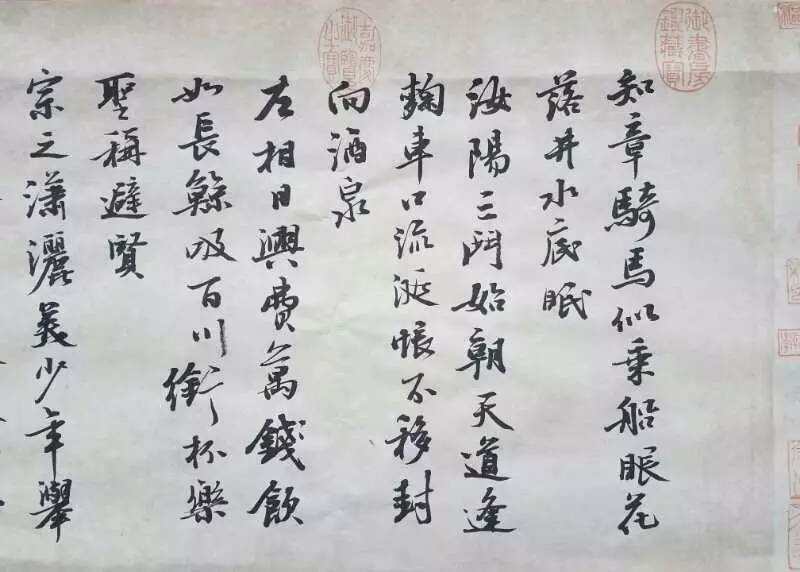 御書房鑑藏寶
知章騎馬似乘船眼花
落井水底眠
汝陽三鬥始朝天道逢
麴車口流涎恨不移封
嘉慶御覽之寶
向酒泉
左相日興費萬錢飲
如長鯨吸百川銜杯樂
聖稱避賢
宗之瀟灑美少年舉